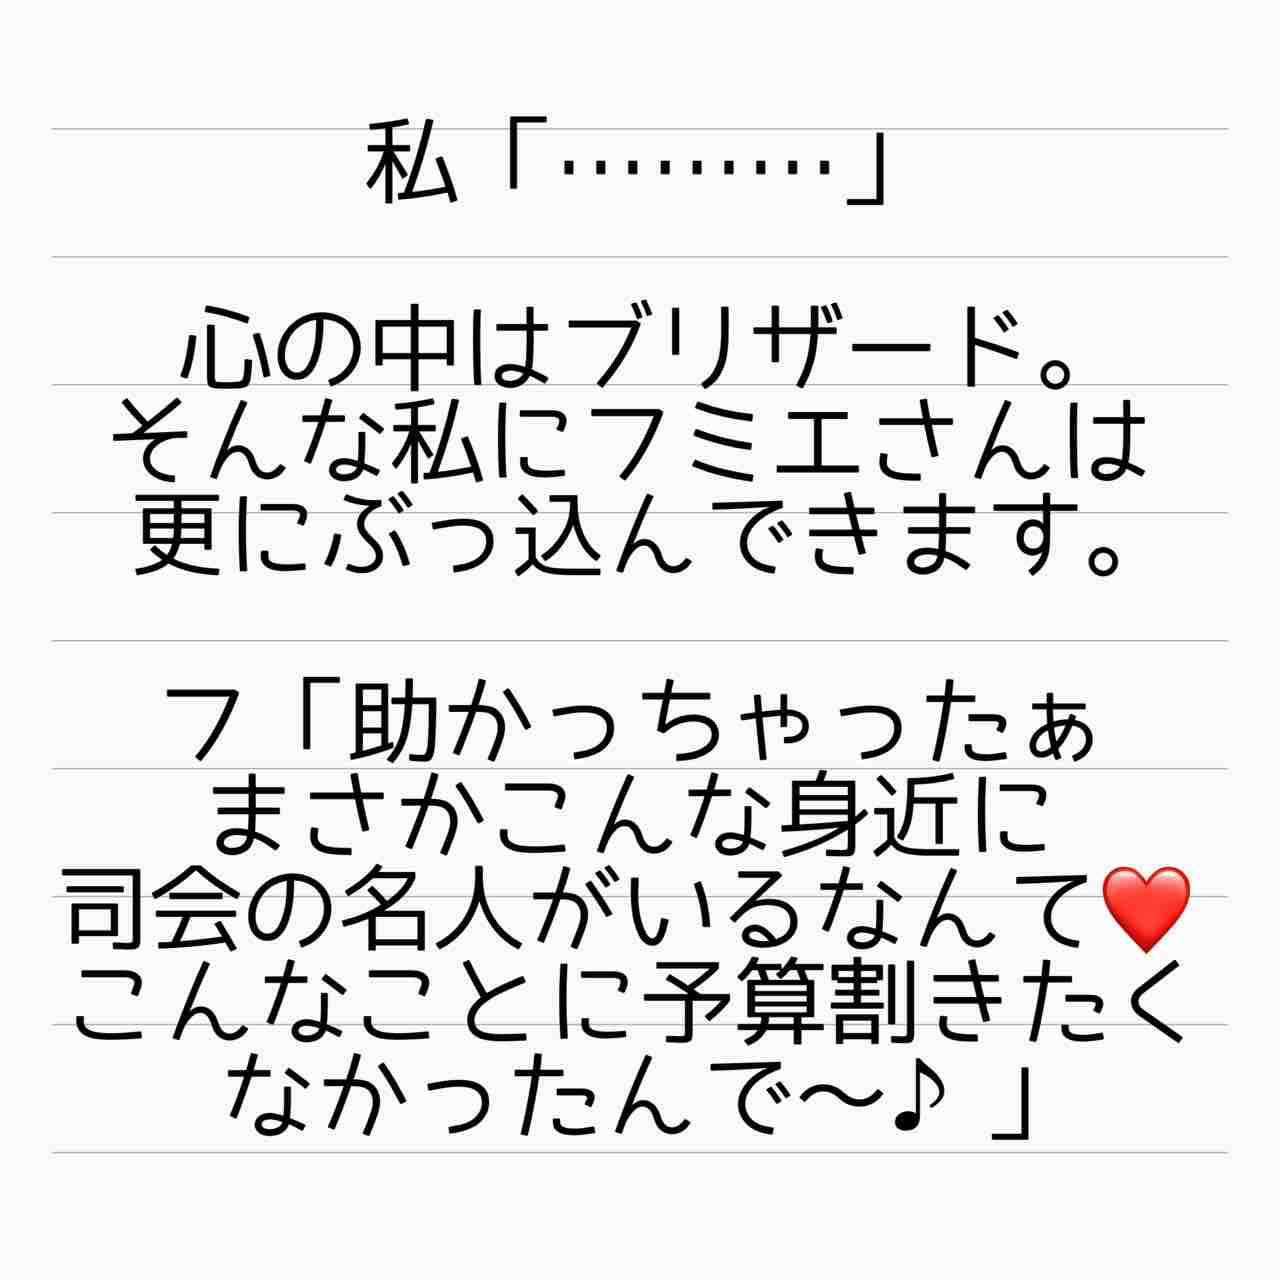 私「………」
心の中はブリザード。
そんな私にフミエさんは
更にぶっ込んできます。
フ「助かっちゃったぁ
まさかこんな身近に
司会の名人がいるなんて❤️
こんなことに予算割きたく
なかったんで〜♪ 」